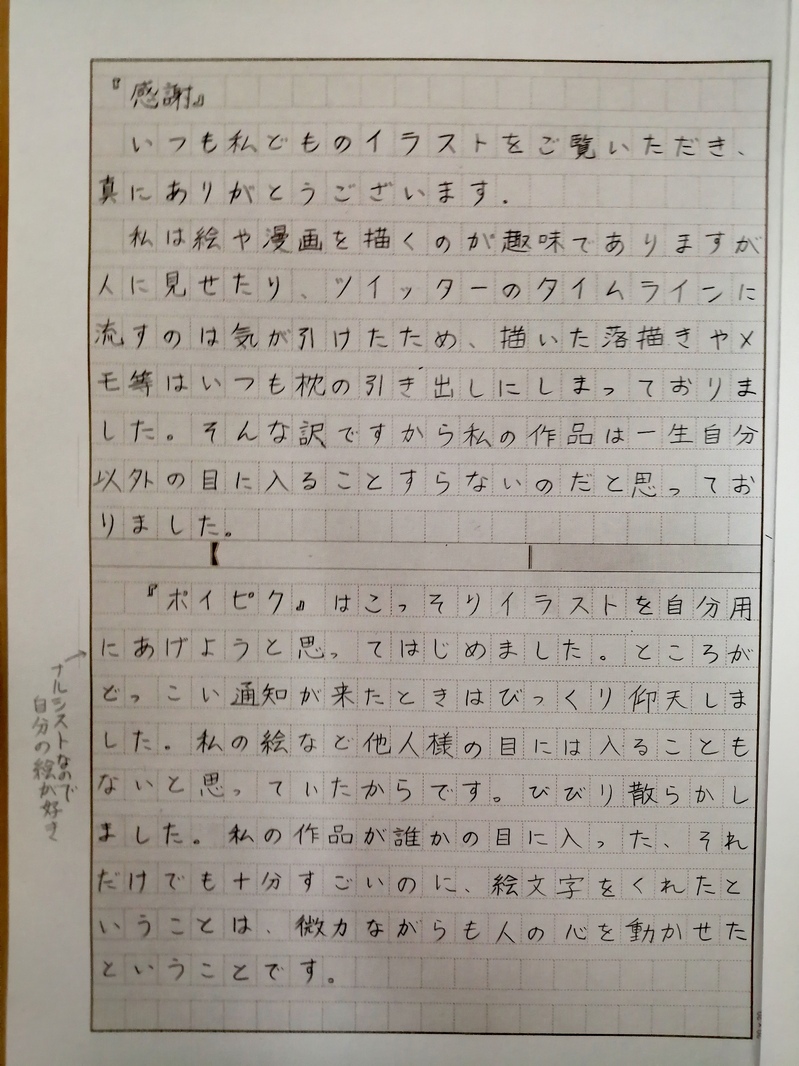 『感謝』
いつも私どものイラストをご覧いただき、
真にありがとうございます.
私は絵や漫画を描くのが趣味でありますが
人に見せたり、ツイッターのタイムラインに
流すのは気が引けたため、描いた落描きやメ
モ等はいつも枕の引き出しにしまっておりま
した。そんな訳ですから私の作品は一生自分
以外の目に入ることすらないのだと思ってお
りました。
『ポイピク』はこっそりイラストを自分用
にあげようと思ってはじめました。ところが
どっこい通知が来たときはびっくり仰天しま
した。私の絵など他人様の目には入ることも
ないと思っていたからです。びびり散らかし
ました。私の作品が誰かの目に入った、それ
だけでも十分すごいのに、絵文字をくれたと
いうことは、微力ながらも人の心を動かせた
ということです。
ナルシストなので
自分の絵が好き